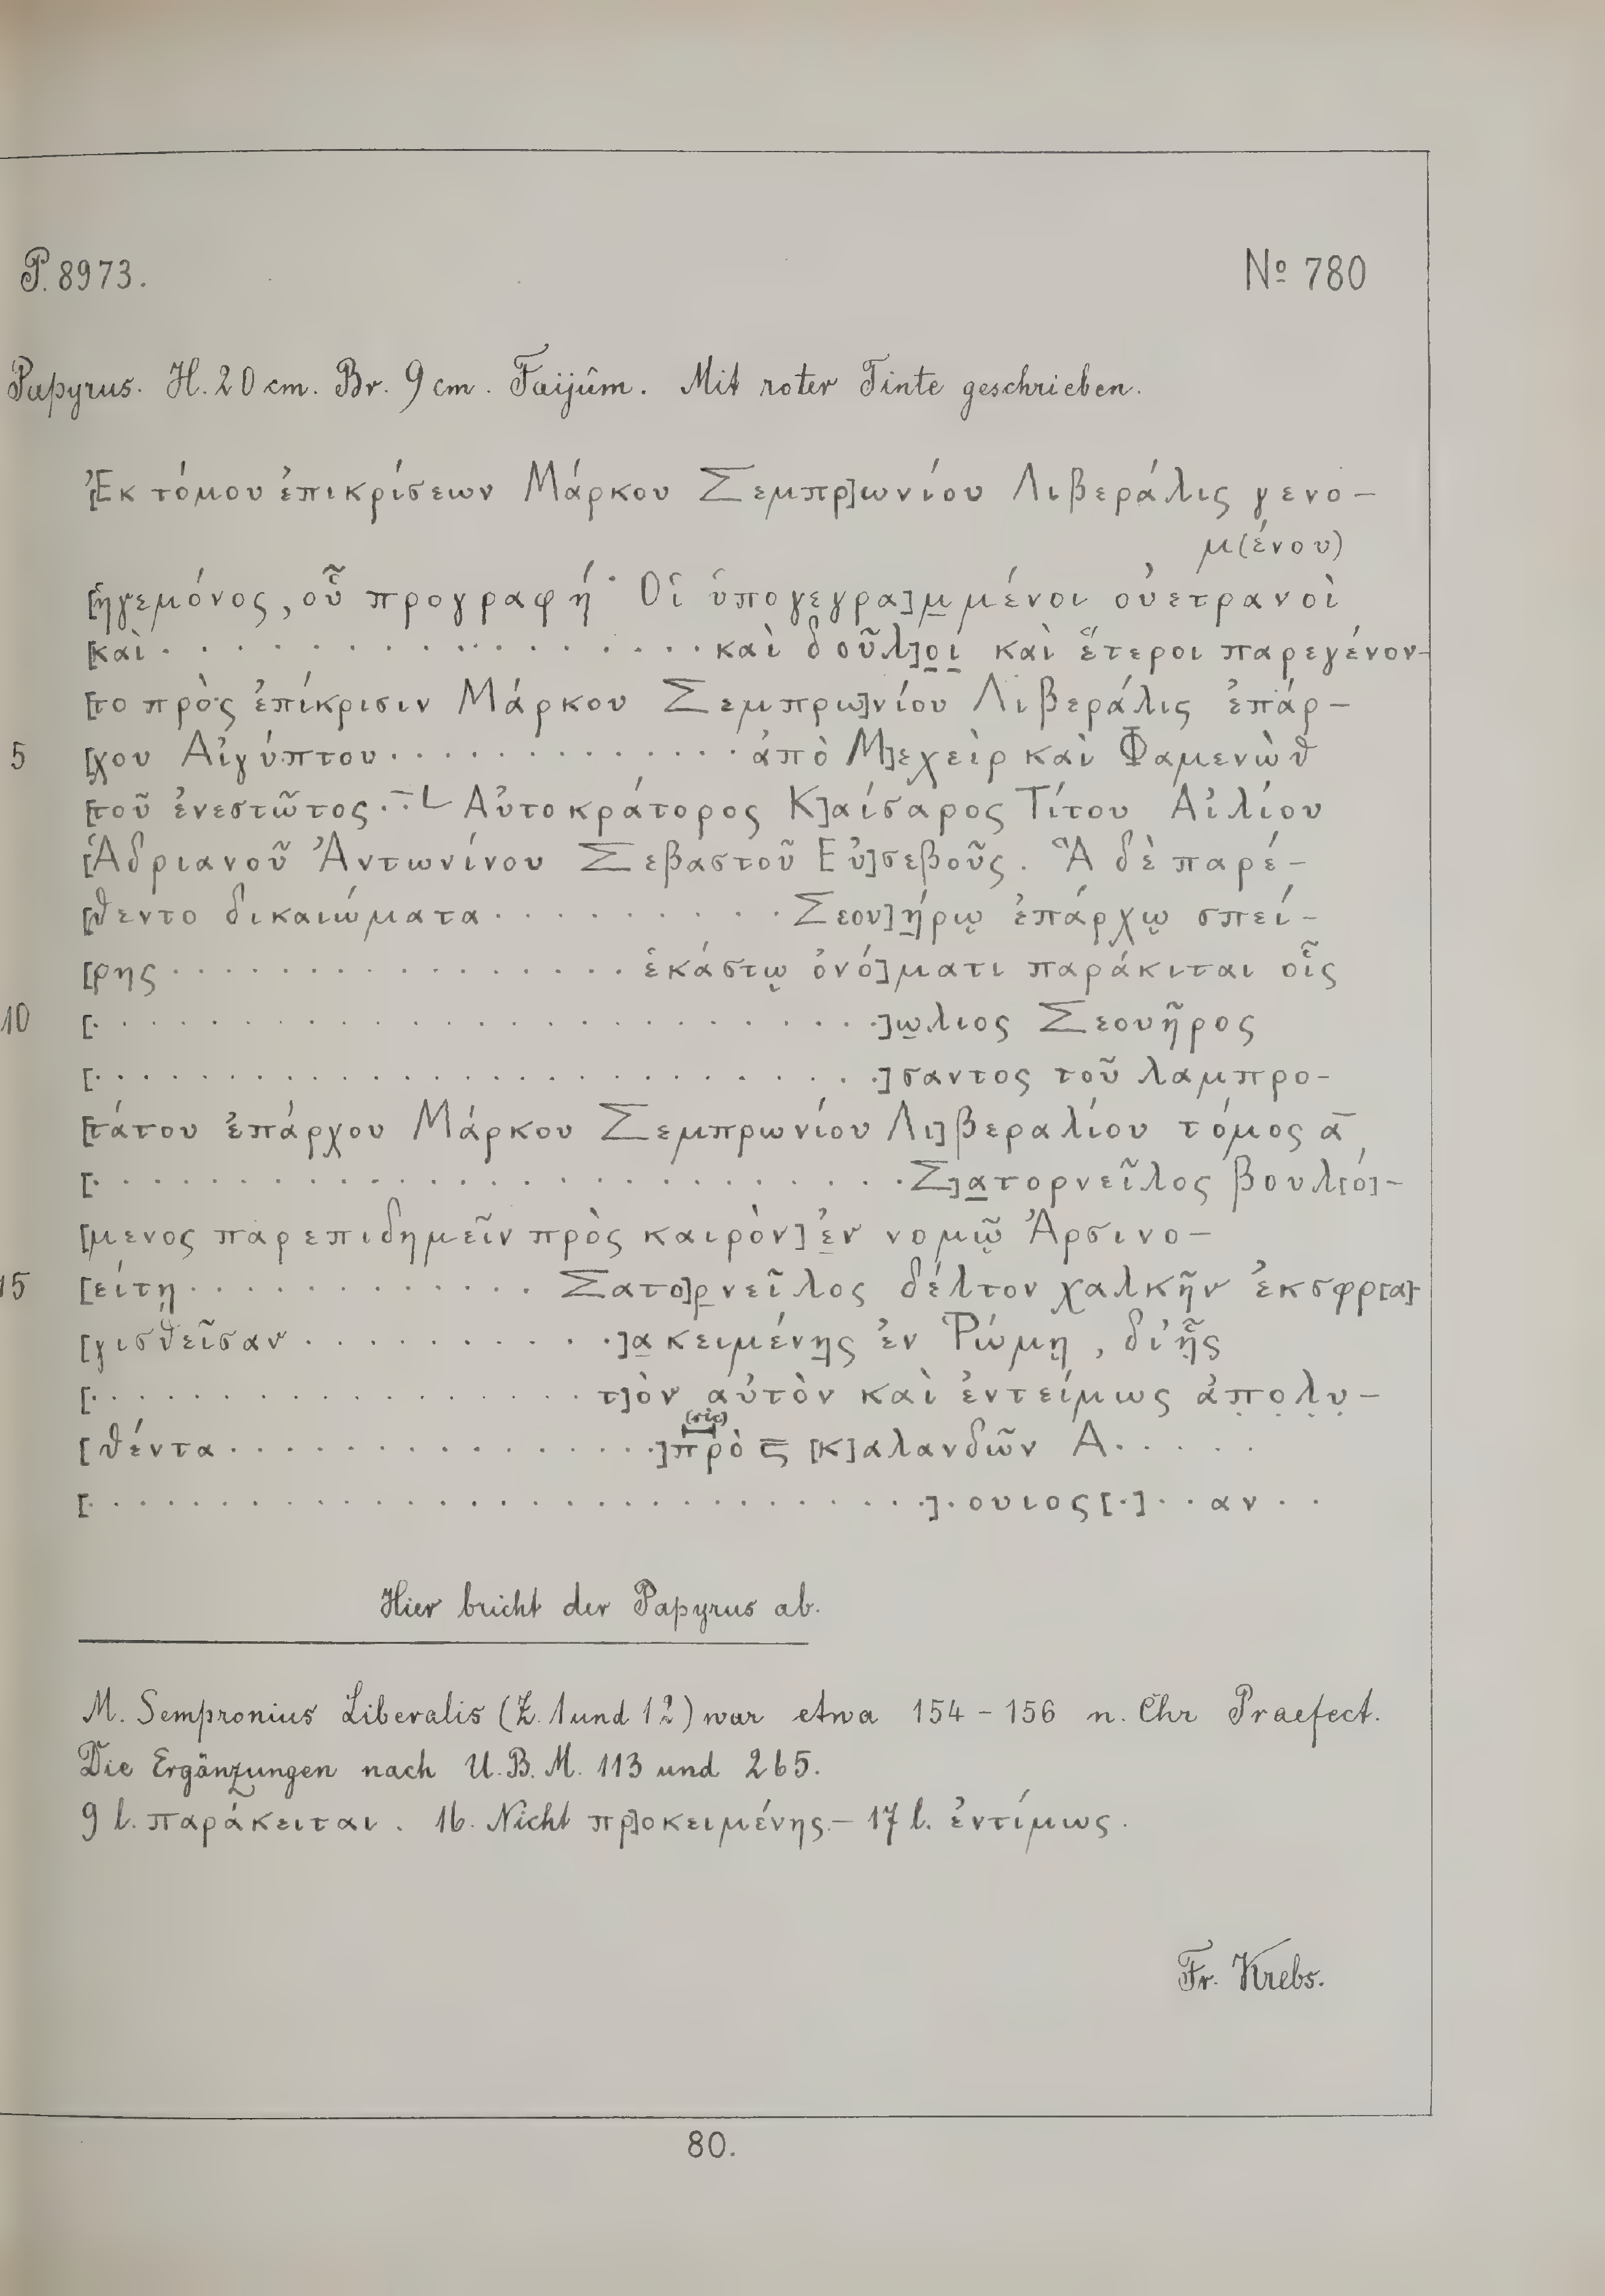 P. 8973. Nº 780
Papyrus. H. 20 cm. Br. 9 cm. Faijûm. Mit roter Tinte geschrieben.
[Ἐκ τόμου ἐπικρίσεων Μάρκου Σεμπρ]ωνίου Λιβεράλις γενο-
μ(ένου)
[ἡγεμόνος, οὗ προγραφή· Οἱ ὑπογεγρα]μ̲μένοι οὐετρανοὶ
[καὶ . . . . . . . . . . . . . . . . . . καὶ δοῦλ]ο̲ι̲ καὶ ἕτεροι παρεγένον-
[το πρὸς ἐπίκρισιν Μάρκου Σεμπρω]νίου Λιβεράλις ἐπάρ-
5 [χου Αἰγύπτου . . . . . . . . . . . . . ἀπὸ Μ]εχεὶρ καὶ Φαμενὼθ
[τοῦ ἐνεστῶτος . . . L Αὐτοκράτορος Κ]αίσαρος Τίτου Αἰλίου
[Ἁδριανοῦ Ἀντωνίνου Σεβαστοῦ Εὐ]σεβοῦς. Ἃ δὲ παρέ-
[θεντο δικαιώματα . . . . . . . . . . . Σεου]ή̲ρῳ ἐπάρχῳ σπεί-
[ρης . . . . . . . . . . . . . . . . . ἑκάστῳ ὀνό]ματι παράκιται οἷς
10 [. . . . . . . . . . . . . . . . . . . . . . . . . . . . .]ω̲λιος Σεουῆρος
[. . . . . . . . . . . . . . . . . . . . . . . . . . . . .]σαντος τοῦ λαμπρο-
[τάτου ἐπάρχου Μάρκου Σεμπρωνίου Λι]βεραλίου τόμος α̅
[. . . . . . . . . . . . . . . . . . . . . . . . . . . . . Σ]α̲τορνεῖλος βουλ[ό]-
[μενος παρεπιδημεῖν πρὸς καιρὸν] ἐ̲ν νομῷ Ἀρσινο-
15 [είτῃ . . . . . . . . . . . . . Σατο]ρ̲νεῖλος δέλτον χαλκῆν ἐκσφρ[α]-
[γισθεῖσαν . . . . . . . . . . . .]α̲κειμένη̲ς ἐν Ῥώμῃ, δι’ ἧς
[. . . . . . . . . . . . . . . . . . τ]ὸν αὐτὸν καὶ ἐντείμως ἀπ̣ο̣λ̣υ̣-
(sic)
[θέντα . . . . . . . . . . . . . . . .] πρὸ ϛ̅ [Κ]αλανδῶν Α . . . . .
[. . . . . . . . . . . . . . . . . . . . . . . . . . . . . .] . ουιος [.] . . αν . .
Hier bricht der Papyrus ab.
M. Sempronius Liberalis (Z. 1 und 12) war etwa 154 - 156 n. Chr Praefect.
Die Ergänzungen nach U.B.M. 113 und 265.
9 l. παράκειται. 16. Nicht πρ]οκειμένης. – 17 l. ἐντίμως.
Fr. Krebs.
80.